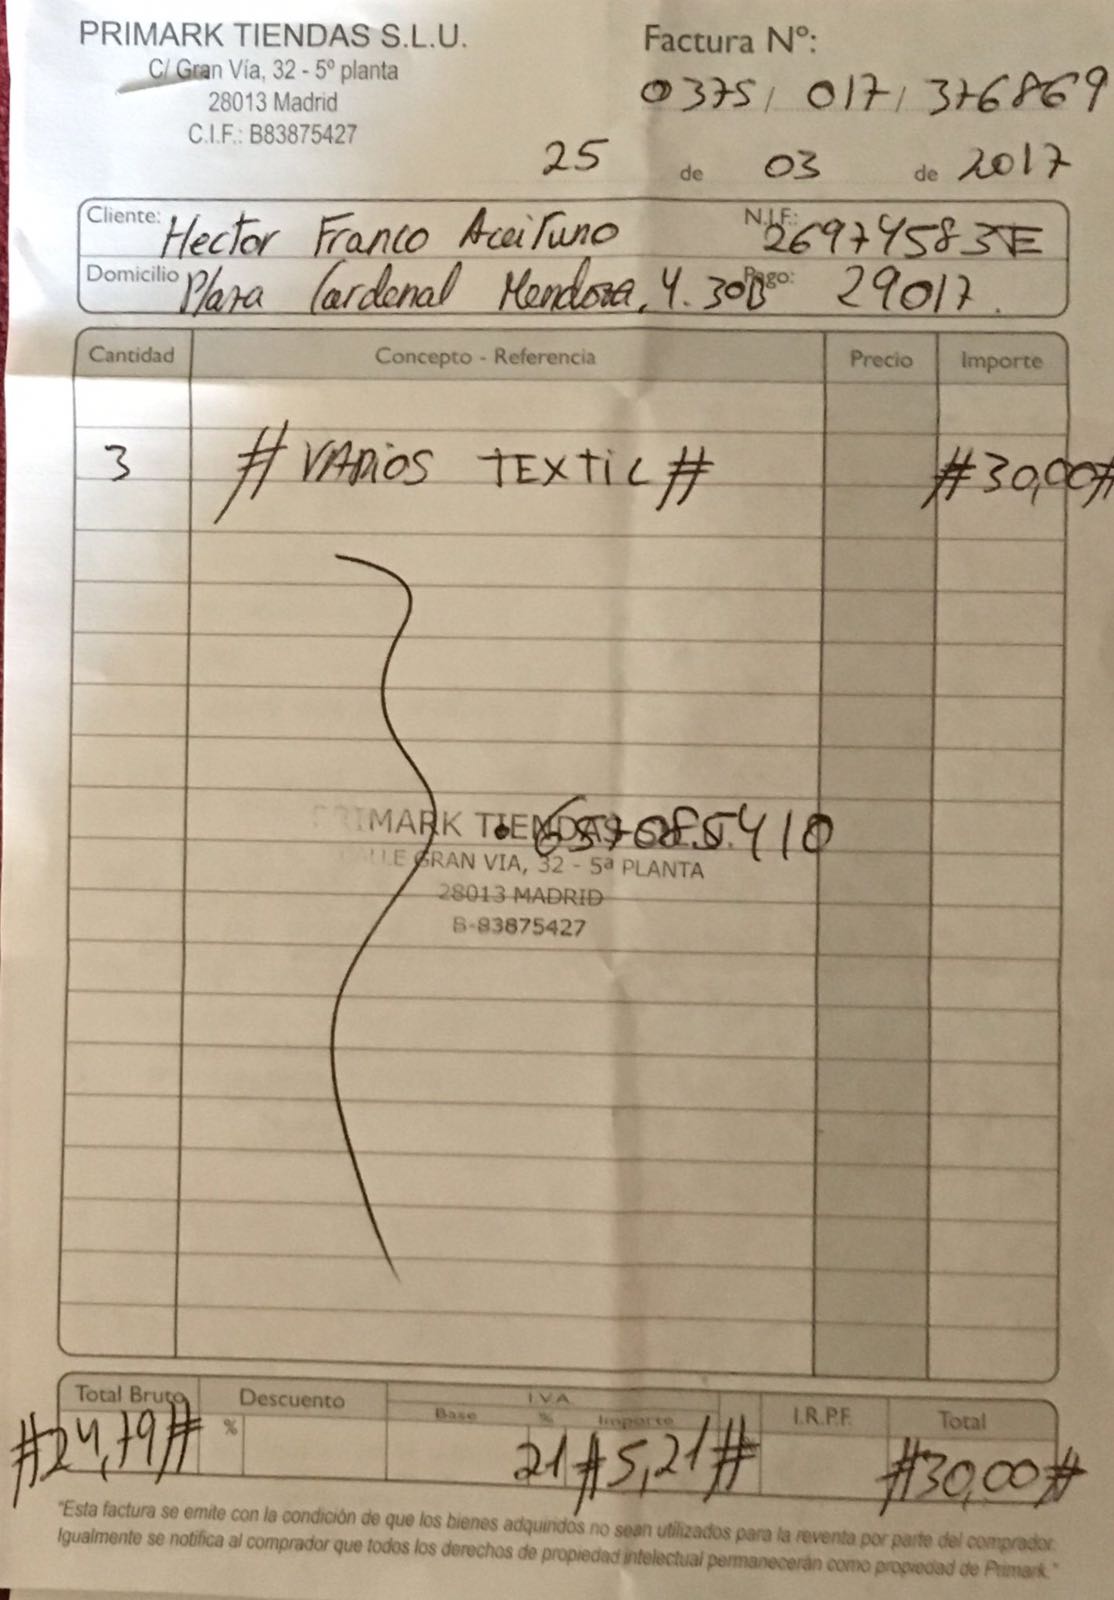 PRIMARK TIENDAS S.L.U.
C/ Gran Vía, 32 - 5º planta
28013 Madrid
C.I.F.: B83875427
Factura Nº:
0375 / 017 / 376869
25 de 03 de 2017
Cliente: Hector Franco Aceituno N.I.F.: 26974583E
Domicilio Plaza Cardenal Mendoza, 4. 30B Pago: 29017.
Cantidad Concepto - Referencia Precio Importe
3 # VARIOS TEXTIL # #30,00#
PRIMARK TIENDAS
657085410
CALLE GRAN VIA, 32 - 5ª PLANTA
28013 MADRID
B-83875427
Total Bruto Descuento I.V.A I.R.P.F. Total
% Base % Importe
#24,79# 21 #5,21# #30,00#
"Esta factura se emite con la condición de que los bienes adquiridos no sean utilizados para la reventa por parte del comprador.
Igualmente se notifica al comprador que todos los derechos de propiedad intelectual permanecerán como propiedad de Primark."